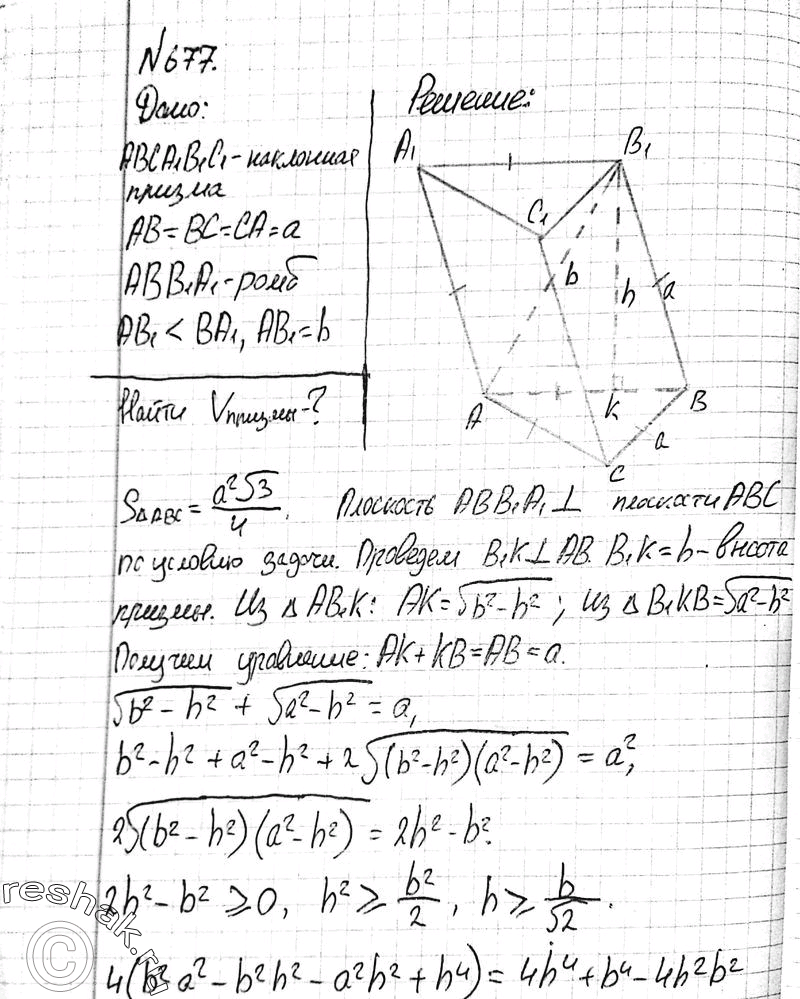 N677.
Дано:
ABCA₁B₁C₁-наклонная
призма
AB=BC=CA=a
ABB₁A₁-ромб
AB₁ < BA₁, AB₁=b
Найти Vпризмы-?
Решение:
A₁
B₁
C₁
b
h
a
A
K
B
a
C
S△ABC = a²√3/4. Плоскость ABB₁A₁ ⊥ плоскости ABC
по условию задачи. Проведем B₁K⊥AB. B₁K=h-высота
призмы. Из △AB₁K: AK=√(b²-h²); из △B₁KB=√(a²-h²)
Получим уравнение: AK+KB=AB=a.
√(b²-h²) + √(a²-h²) = a,
b²-h²+a²-h²+2√((b²-h²)(a²-h²)) = a²,
2√((b²-h²)(a²-h²)) = 2h²-b².
2h²-b² ⩾ 0, h² ⩾ b²/2, h ⩾ b/√2.
4(b²a²-b²h²-a²h²+h⁴) = 4h⁴+b⁴-4h²b²
reshak.ru
©